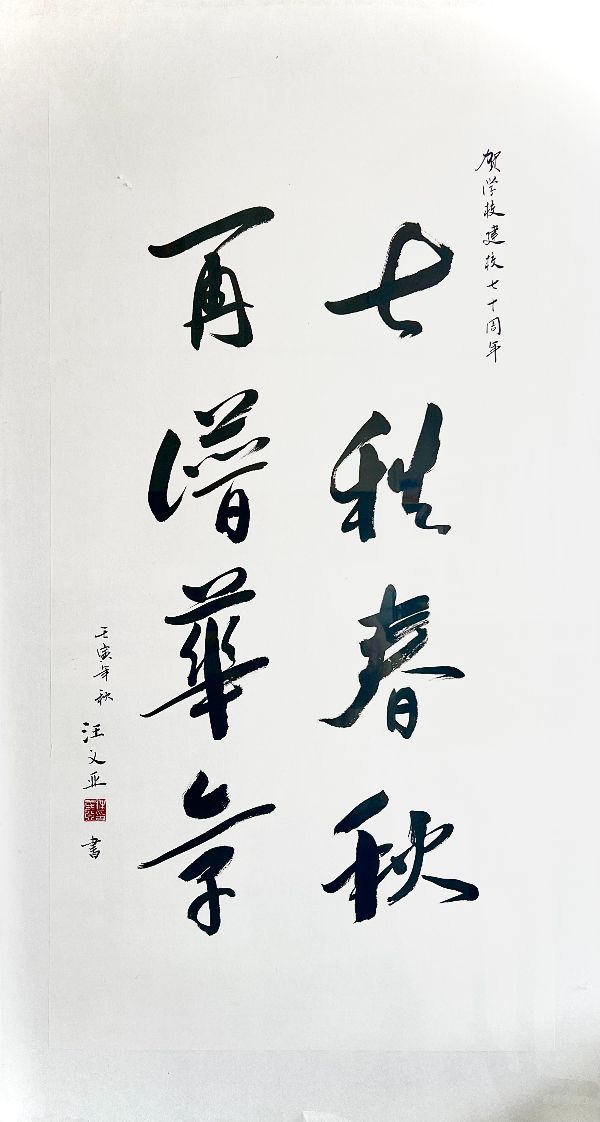 贺学校建校七十周年
七秩春秋
再谱华章
壬寅年秋 汪文亚 书